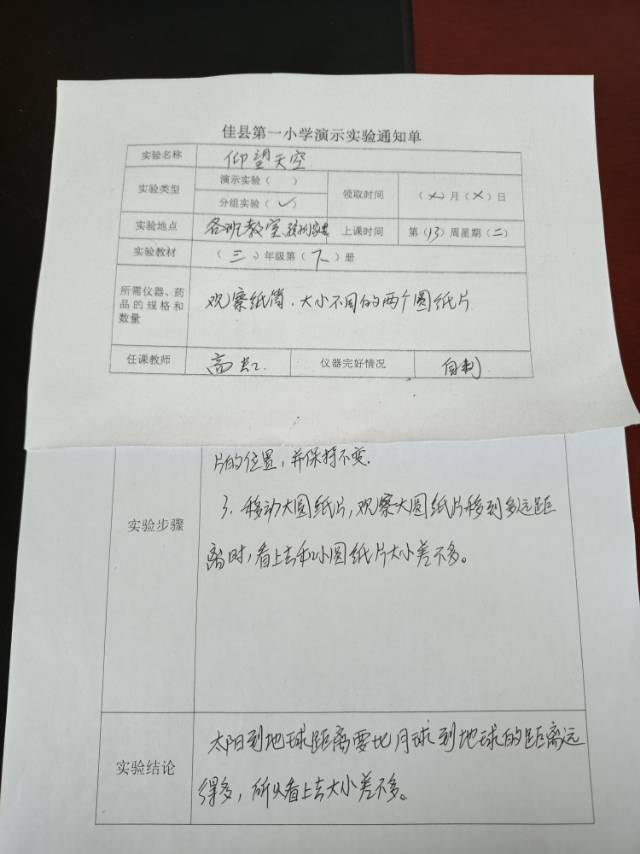 佳县第一小学演示实验通知单
实验名称 仰望天空
实验类型 演示实验（ ） 领取时间 （×）月（×）日
分组实验（✓）
实验地点 各班教室 上课时间 第（13）周星期（二）
实验教材 （三）年级第（下）册
所需仪器、药品的规格和数量 观察纸筒、大小不同的两个圆纸片
任课教师 高 仪器完好情况 自制
片的位置，并保持不变.
实验步骤 3. 移动大圆纸片，观察大圆纸片移到多远距
离时，看上去和小圆纸片大小差不多。
太阳到地球距离要比月球到地球的距离远
实验结论 得多，所以看上去大小差不多。